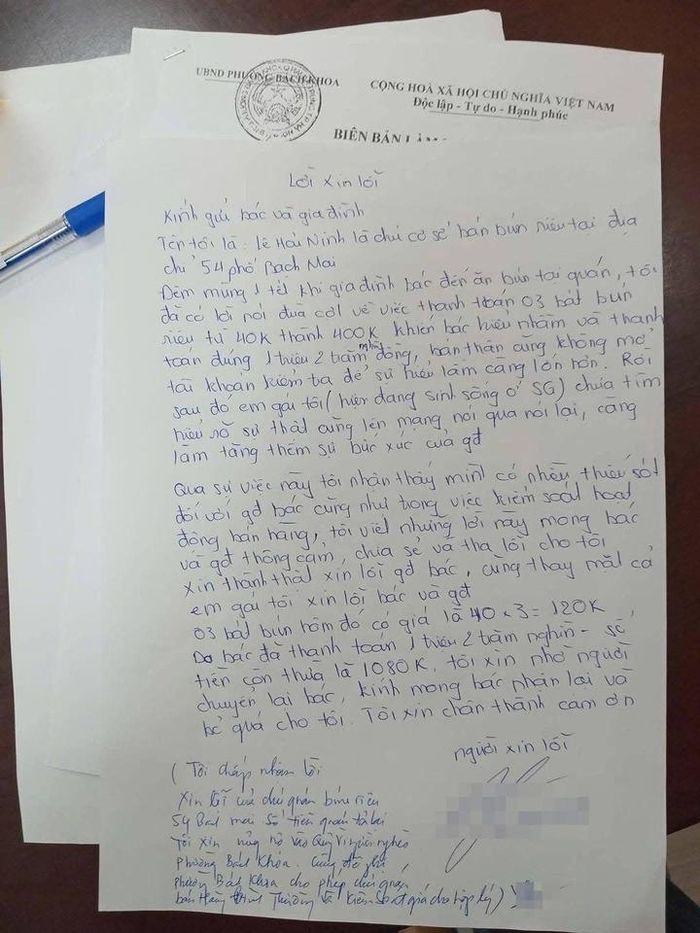 UBND PHƯỜNG BÁCH KHOA
CỘNG HOÀ XÃ HỘI CHỦ NGHĨA VIỆT NAM
Độc lập - Tự do - Hạnh phúc
BIÊN BẢN LÀM
Lời xin lỗi
Kính gửi bác và gia đình
Tên tôi là: Lê Hải Ninh là chủ cơ sở bán bún riêu tại địa
chỉ 54 phố Bạch Mai
Đêm mùng 1 tết khi gia đình bác đến ăn bún tại quán, tôi
đã có lời nói đùa cợt về việc thanh toán 03 bát bún
riêu từ 40K thành 400K khiến bác hiểu nhầm và thanh
toán đúng 1 triệu 2 trăm nghìn đồng, bản thân cũng không mở
tài khoản kiểm tra để sự hiểu lầm càng lớn hơn. Rồi
sau đó em gái tôi (hiện đang sinh sống ở SG) chưa tìm
hiểu rõ sự thật cũng lên mạng nói qua nói lại, càng
làm tăng thêm sự bức xúc của gđ
Qua sự việc này tôi nhận thấy mình có nhiều thiếu sót
đối với gđ bác cũng như trong việc kiểm soát hoạt
động bán hàng, tôi viết những lời này mong bác
và gđ thông cảm, chia sẻ và tha lỗi cho tôi
xin thành thật xin lỗi gđ bác, cùng thay mặt cả
em gái tôi xin lỗi bác và gđ
03 bát bún hôm đó có giá là 40 x 3 = 120K
Do bác đã thanh toán 1 triệu 2 trăm nghìn - số
tiền còn thừa là 1080K. tôi xin nhờ người
chuyển lại bác, kính mong bác nhận lại và
bỏ quá cho tôi. Tôi xin chân thành cảm ơn
người xin lỗi
(Tôi chấp nhận lời
xin lỗi của chủ quán bún riêu
54 Bạch mai số tiền quán trả lại
Tôi xin ủng hộ vào Quỹ Vì người nghèo
phường Bách Khoa.
phường Bách Khoa cho phép chủ quán
bán hàng bình thường và kiểm soát giá cho hợp lý)